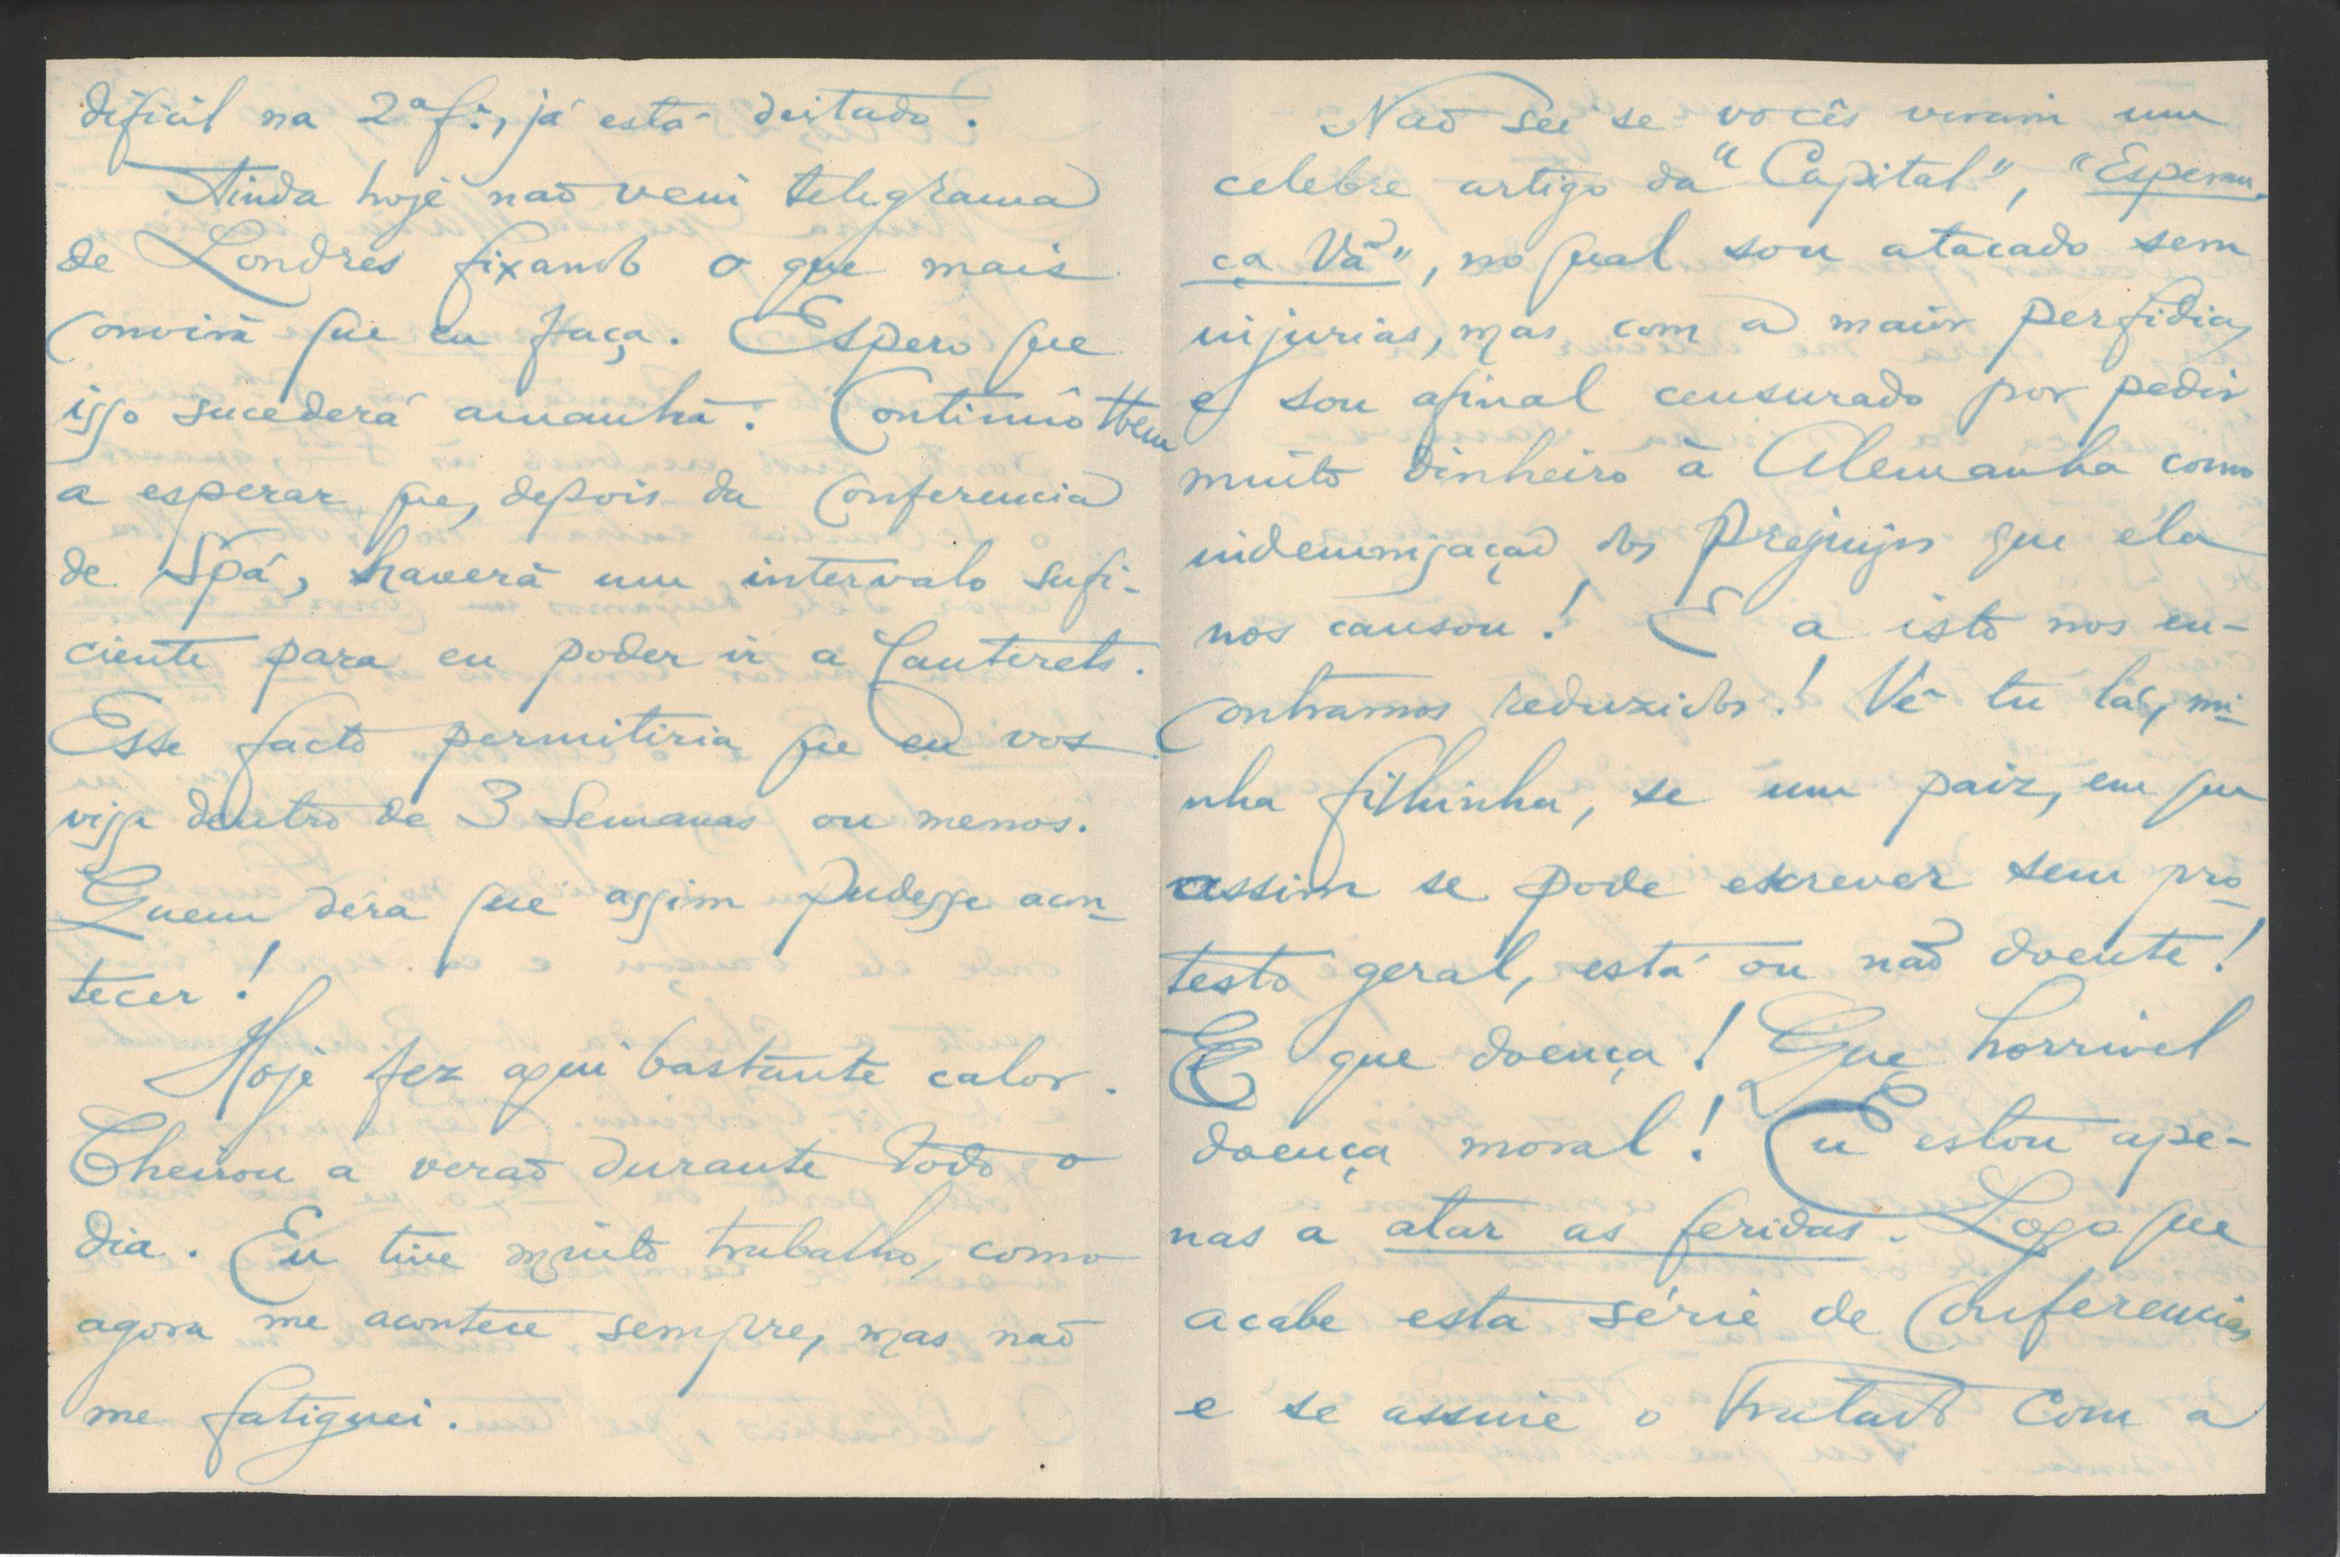 dificil na 2ª fª, já está deitado.
Ainda hoje não veiu telegrama
de Londres fixando o que mais
convirá que eu faça. Espero que
isso sucederá amanhã. Continuo tbem
a esperar que, depois da Conferencia
de Spá, haverá um intervalo sufi-
ciente para eu poder ir a Cauterets.
Esse facto permitiria que eu vos
visse dentro de 3 semanas ou menos.
Quem déra que assim pudesse acon-
tecer!
Hoje fez aqui bastante calor.
Cheirou a verão durante todo o
dia. Eu tive muito trabalho, como
agora me acontece sempre, mas não
me fatiguei.
Não sei se vocês viram um
celebre artigo da "Capital", "Esperan-
ça Vã", no qual sou atacado sem
injurias, mas com a maior perfidia,
e sou afinal censurado por pedir
muito dinheiro à Alemanha como
indemnisação dos prejuisos que ela
nos causou! E a isto nos en-
contramos reduzidos! Vê tu lá, mi-
nha filhinha, se um paiz, em que
assim se pode escrever sem pro-
testo geral, está ou não doente!
E que doença! Que horrivel
doença moral! Eu estou ape-
nas a atar as feridas. Logo que
acabe esta série de Conferencias
e se assine o Tratado com a